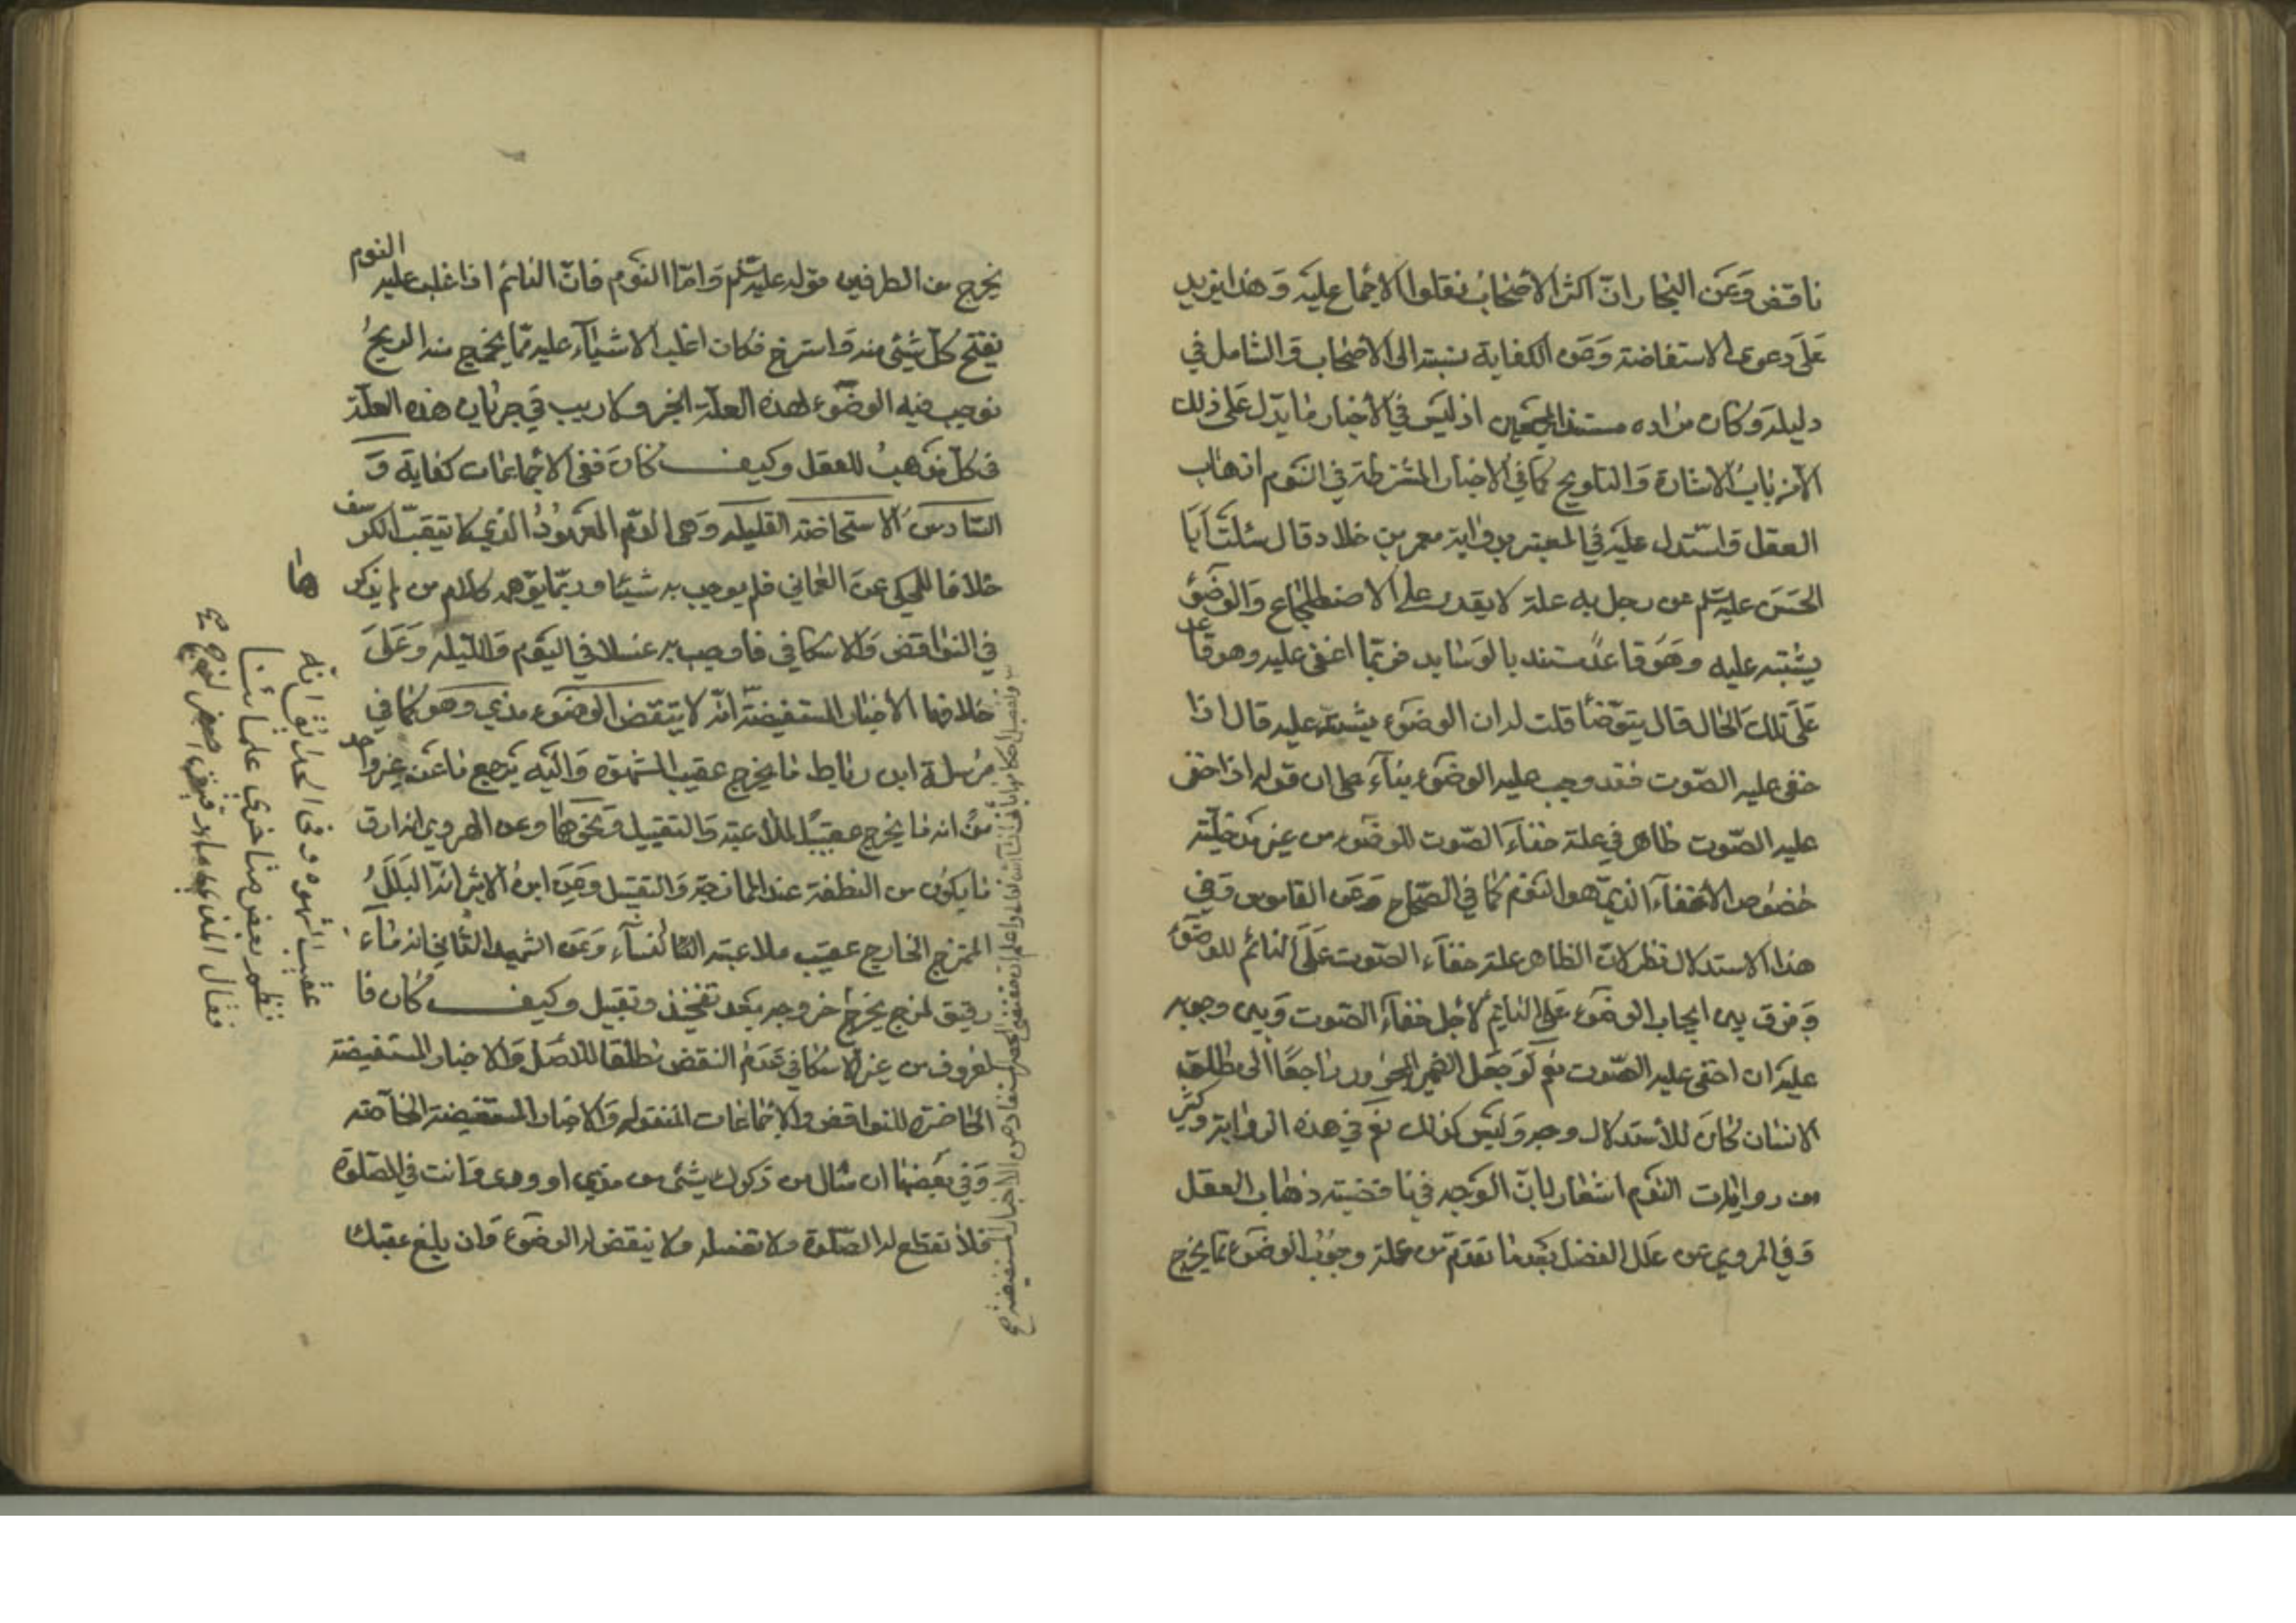 ناقض وعن البحار ان اكثر الاصحاب نقلوا الاجماع عليه وهذا يزيد
على دعوى الاستفاضة وعن الكفاية نسبته الى الاصحاب والتامل في
دليله وكان مراده مستند المجمعين اذ ليس في الاخبار ما يدل على ذلك
الا من باب الاشارة والتلويح كما في الاخبار المشترطة في النوم اذهاب
العقل واستدل عليه في المعتبر برواية معمر بن خلاد قال سئلت ابا
الحسن عليه السلم عن رجل به علة لا يقدر على الاضطجاع والوضوء
يشتد عليه وهو قاعد مستند بالوسايد فربما اغفى عليه وهو قاعد
على تلك الحال قال يتوضأ قلت له ان الوضوء يشتد عليه قال اذا
خفى عليه الصوت فقد وجب عليه الوضوء بناء على ان قوله اذا خفى
عليه الصوت ظاهر في علة خفاء الصوت للوضوء من غير مدخلية
خصوص الاغفاء الذي هو النوم كما في الصحاح وعن القاموس وفي
هذا الاستدلال نظر لان الظاهر علة خفاء الصوت على النائم للوضوء
وفرق بين ايجاب الوضوء على النايم لاجل خفاء الصوت وبين وجوبه
عليه ان اختفى عليه الصوت نعم لو جعل الضمير المجرور راجعا الى مطلق
الانسان لكان للاستدلال وجه وليس كذلك نعم في هذه الرواية وكثير
من روايات النوم اشعار بان الوجه في ناقضيته ذهاب العقل
وفي المروي عن علل الفضل بعد ما تقدم من علة وجوب الوضوء مما يخرج
يخرج من الطرفين قوله عليه السلم واما النوم فان النائم اذا غلب عليه النوم
يفتح كل شيئ منه واسترخ فكان اغلب الاشياء عليه مما يخرج منه الريح
فوجب فيه الوضوء لهذه العلة الخبر ولا ريب في جريان هذه العلة
في كل مذهب للعقل وكيف كان ففى الاجماعات كفاية و
السادس الاستحاضة القليلة وهى الدم المعهود الذي لا يثقب الكرسف
خلافا للمحكى عن العماني فلم يوجب به شيئا وربما يوهمه كلام من لم يذكرها
في النواقض والاسكافي فاوجب به غسلا في اليوم والليلة وعلى
خلافهما الاخبار المستفيضة انه لا ينقض الوضوء مذي وهو كما في
مرسلة ابن رباط ما يخرج عقيب الشهوة واليه يرجع ما عن غير واحد
من انه ما يخرج عقيب الملاعبة والتقبيل ونحوهما وعن الهروي انه ارق
ما يكون من النطفة عند الممازجة والتقبيل وعن ابن الاثير انه البلل
اللزج الخارج عقيب ملاعبة النساء وعن الشهيد الثاني انه ماء
رقيق لزج يخرج خروجه بعد تفخيذ وتقبيل وكيف كان فا
لمعروف من غير الاسكافي عدم النقض مطلقا للاصل والاخبار المستفيضة
الحاصرة للنواقض والاجماعات المنقولة والاخبار المستفيضة الخاصة
وفي بعضها ان سال من ذكرك شيئ من مذي او ودي وانت في الصلوة
فلا تقطع له الصلوة ولا تغسله ولا ينقض له الوضوء وان بلغ عقبك